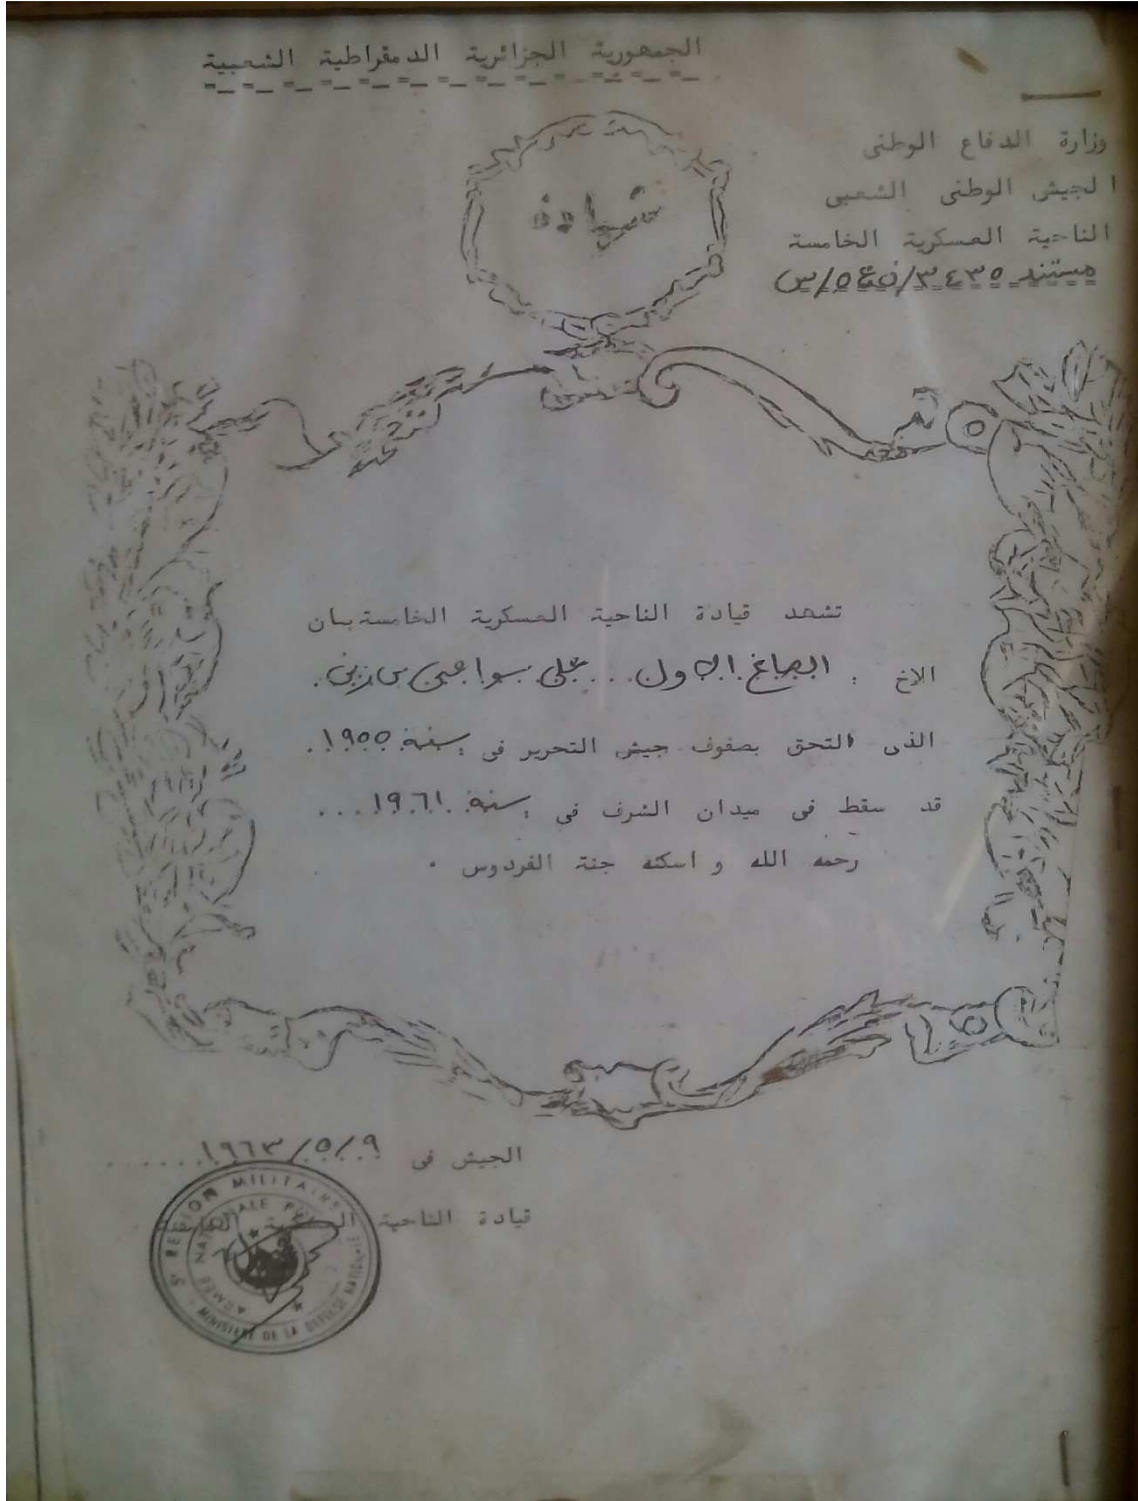 الجمهورية الجزائرية الدمقراطية الشعبية
وزارة الدفاع الوطنى
الجيش الوطنى الشعبى
الناحية العسكرية الخامسة
مستند ٣٤٣٥
شهادة
تشهد قيادة الناحية العسكرية الخامسة بان
الاخ : الاول... علي
الذى التحق بصفوف جيش التحرير فى : سنة ١٩٥٥.
قد سقط فى ميدان الشرف فى : سنة ١٩٦١...
رحمه الله و اسكنه جنة الفردوس .
الجيش فى ١٩٦٣/٥/٩
قيادة الناحية
5e REGION MILITAIRE
ARMEE NATIONALE
MINISTERE DE LA DEFENSE NATIONALE